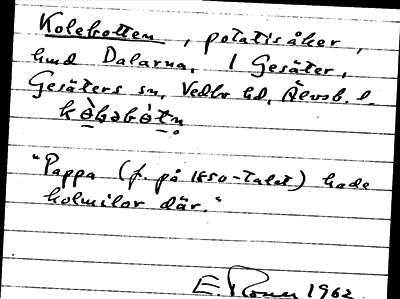 Kolebotten, potatisåker,
hmd Dalarna, 1 Gesäter,
Gesäters sn, Vedbo hd, Älvsb. l.
"Pappa (f. på 1850-talet) hade
kolmilor där."
E. 1962